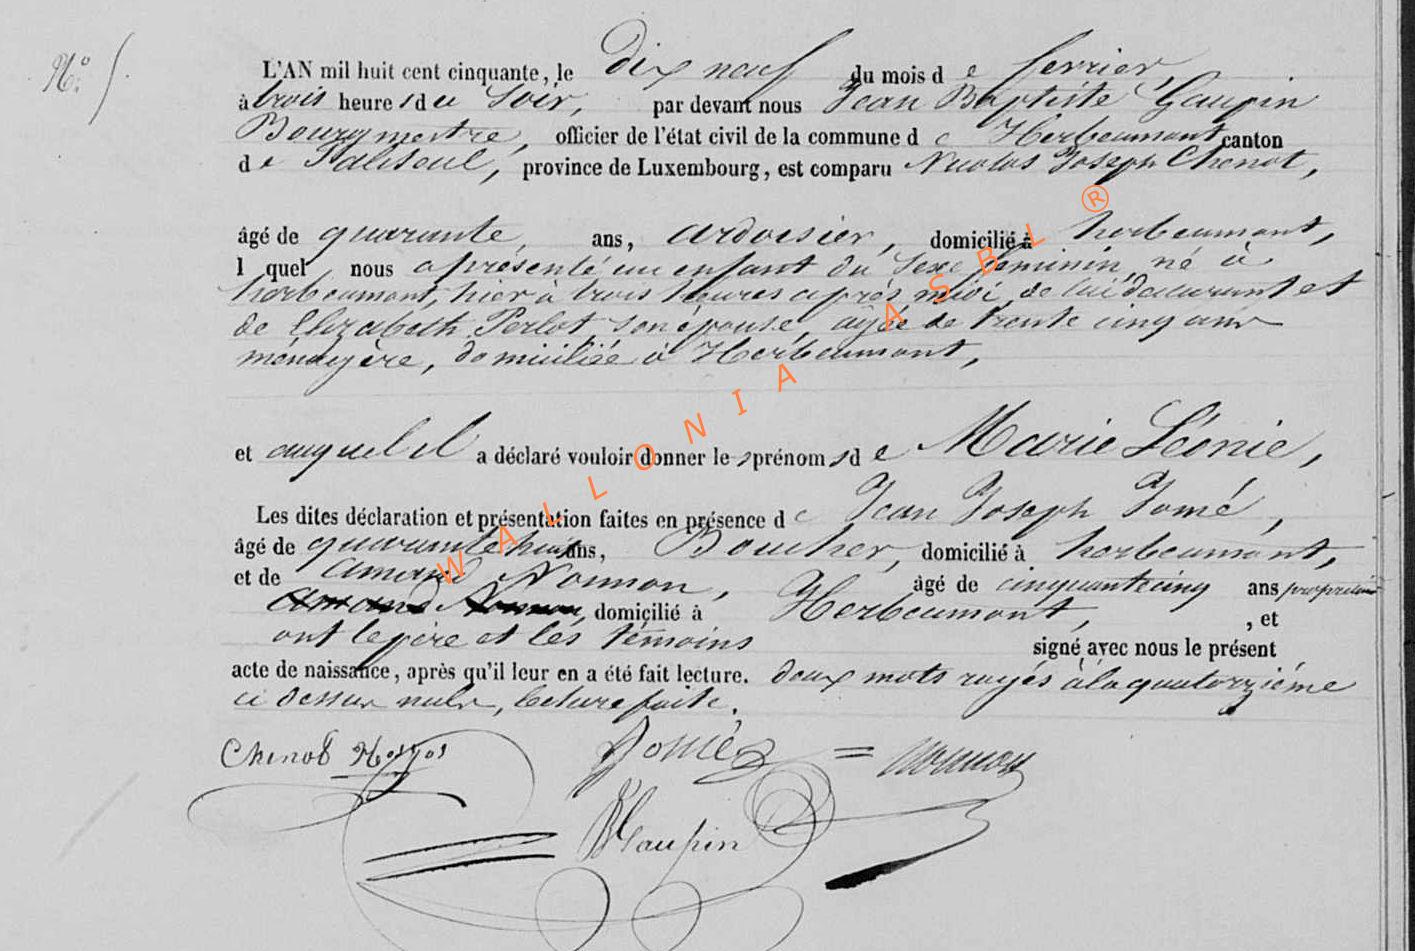 N.° 5
L'AN mil huit cent cinquante, le dix neuf du mois de fevrier,
à trois heures du soir, par devant nous Jean Baptiste Gaupin
Bourgmestre, officier de l'état civil de la commune de Herbeumont canton
de Paliseul, province de Luxembourg, est comparu Nicolas Joseph Chenot,
âgé de quarante, ans, ardoisier, domicilié à herbeumont,
l quel nous a présenté un enfant du sexe féminin, né à
herbeumont, hier à trois heures après midi, de lui déclarant et
de Elizabeth Perlot, son épouse, agée de trente cinq ans
ménagère, domiciliée à Herbeumont,
et auquel il a déclaré vouloir donner les prénoms de Marie Léonie,
Les dites déclaration et présentation faites en présence de Jean Joseph Jomé,
âgé de quarante huit ans, Boucher, domicilié à herbeumont,
et de Amand Nonnon, âgé de cinquante cinq ans
Amand Nonnon, domicilié à Herbeumont, , et
ont le père et les témoins signé avec nous le présent
acte de naissance, après qu'il leur en a été fait lecture. deux mots rayés à la quatorzième
ci dessus nuls, lecture faite.
Chenot Jomé = Nonnon
Gaupin
WALLONIA ASBL ®